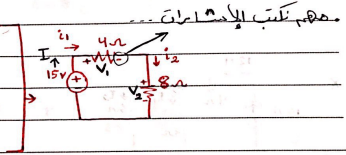 مهم نكتب الإشارات ...
i₁
4Ω
I
+
-
i₂
V₁
15v
+
-
V₂
+
8Ω